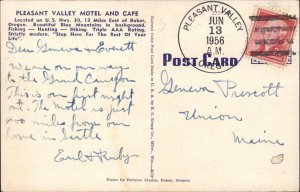 PLEASANT VALLEY MOTEL AND CAFE
Located on U.S. Hwy. 30, 13 Miles East of Baker,
Oregon. Beautiful Blue Mountains in background.
Fishing — Hunting — Hiking. Triple AAA Rating.
Strictly modern. "Stop Here For The Rest Of Your
Life."
Dear Geneva & Everett
We are on our way
to the Grand Canyon
This is our first night
out. The motel is just
400 miles from our
home in Seattle
Earl & Ruby
PLEASANT VALLEY
JUN
13
1956
A.M.
OREG.
POST CARD
Geneva Prescott
Union
Maine
Photo by Holman Studio, Baker, Oregon